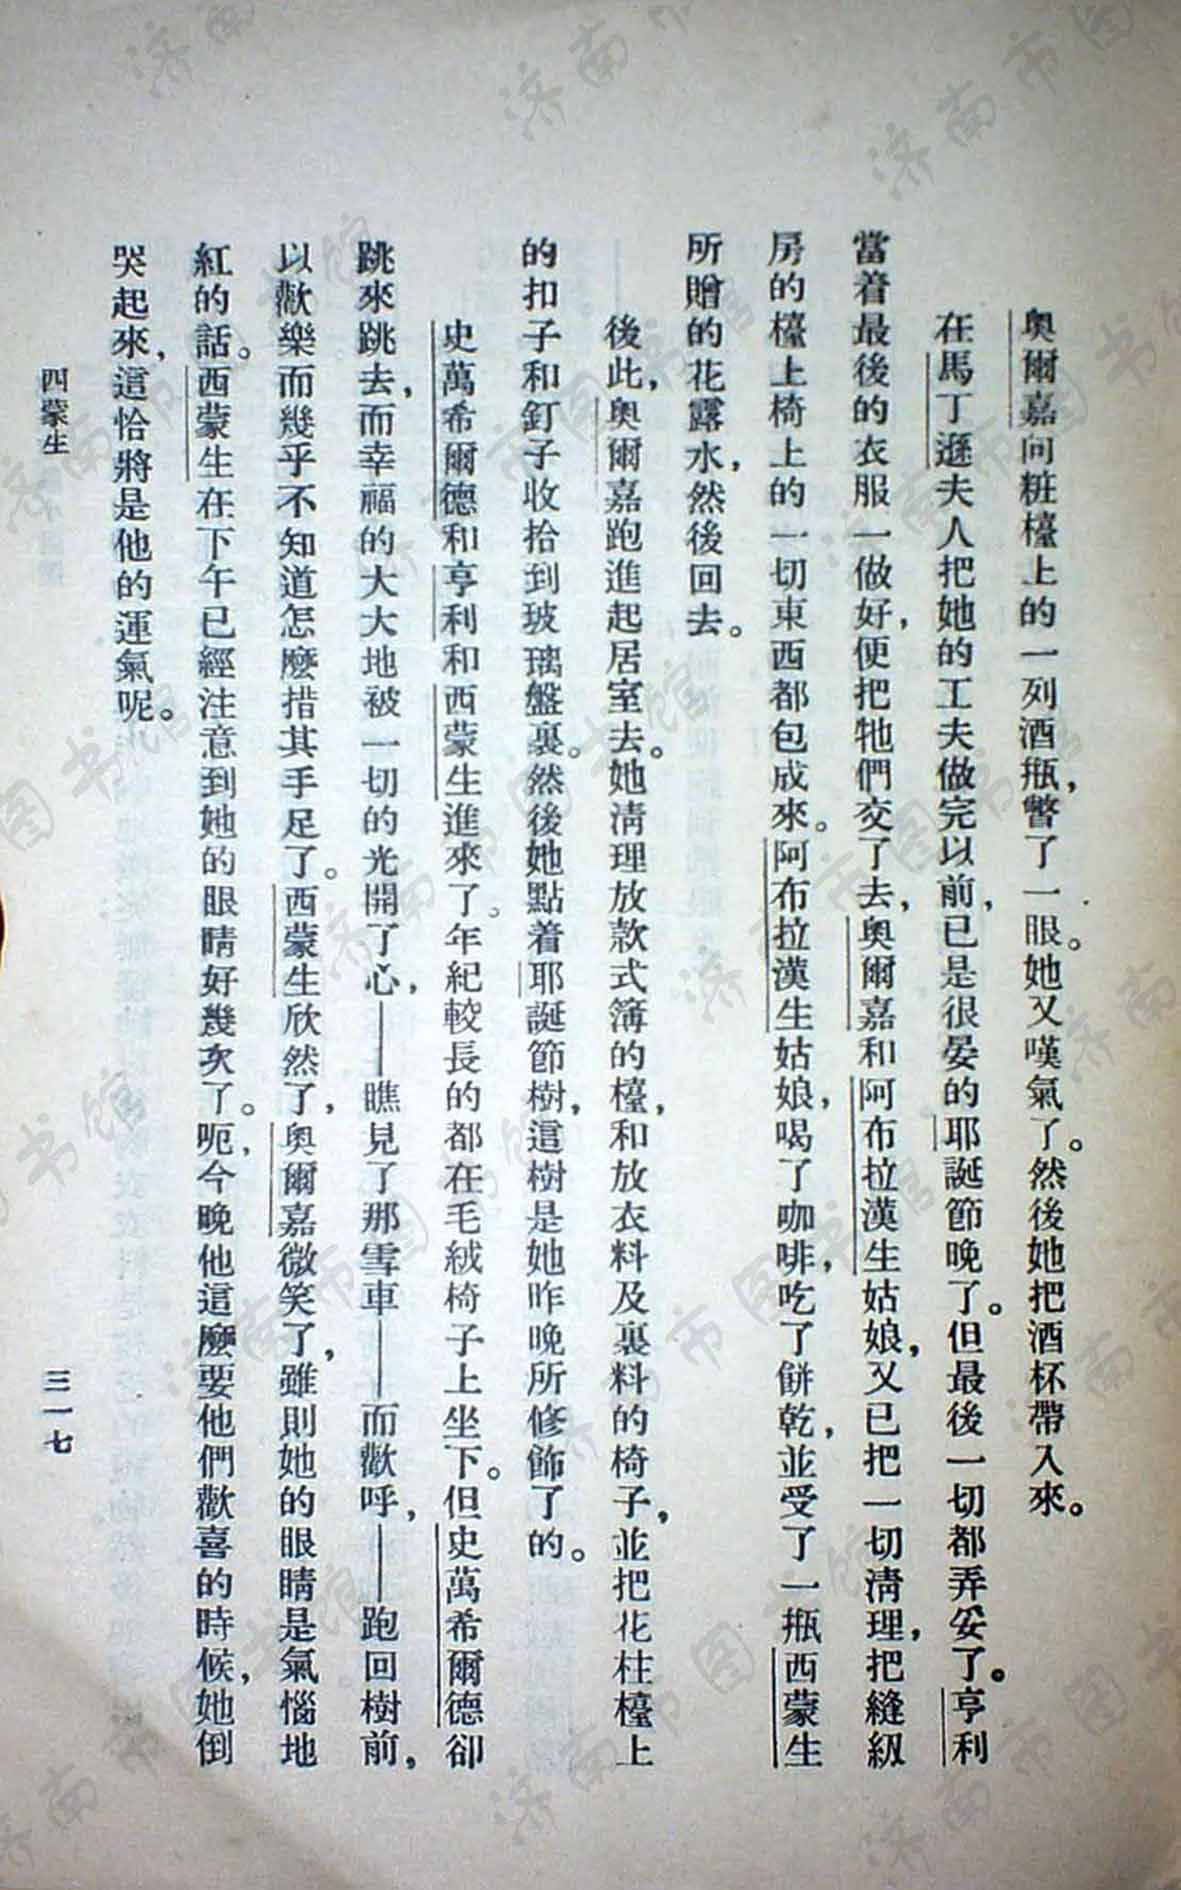 奧爾嘉向粧檯上的一列酒瓶，瞥了一眼。她又嘆氣了。然後她把酒杯帶入來。
在馬丁遜夫人把她的工夫做完以前，已是很晏的耶誕節晚了。但最後一切都弄妥了。亨利
當着最後的衣服一做好，便把牠們交了去，奧爾嘉和阿布拉漢生姑娘，又已把一切淸理，把縫級
房的檯上椅上的一切東西都包成來。阿布拉漢生姑娘，喝了咖啡，吃了餅乾，並受了一瓶西蒙生
所贈的花露水，然後回去。
後此，奧爾嘉跑進起居室去。她淸理放款式簿的檯，和放衣料及裏料的椅子，並把花柱檯上
的扣子和釘子收拾到玻璃盤裏。然後她點着耶誕節樹，這樹是她昨晚所修飾了的。
史萬希爾德和亨利和西蒙生進來了。年紀較長的都在毛絨椅子上坐下。但史萬希爾德卻
跳來跳去，而幸福的大大地被一切的光開了心，——瞧見了那雪車——而歡呼，——跑回樹前，
以歡樂而幾乎不知道怎麼措其手足了。西蒙生欣然了，奧爾嘉微笑了，雖則她的眼睛是氣惱地
紅的話。西蒙生在下午已經注意到她的眼睛好幾次了。呃，今晚他這麼要他們歡喜的時候，她倒
哭起來，這恰將是他的運氣呢。
四蒙生
三一七
济南市图书馆